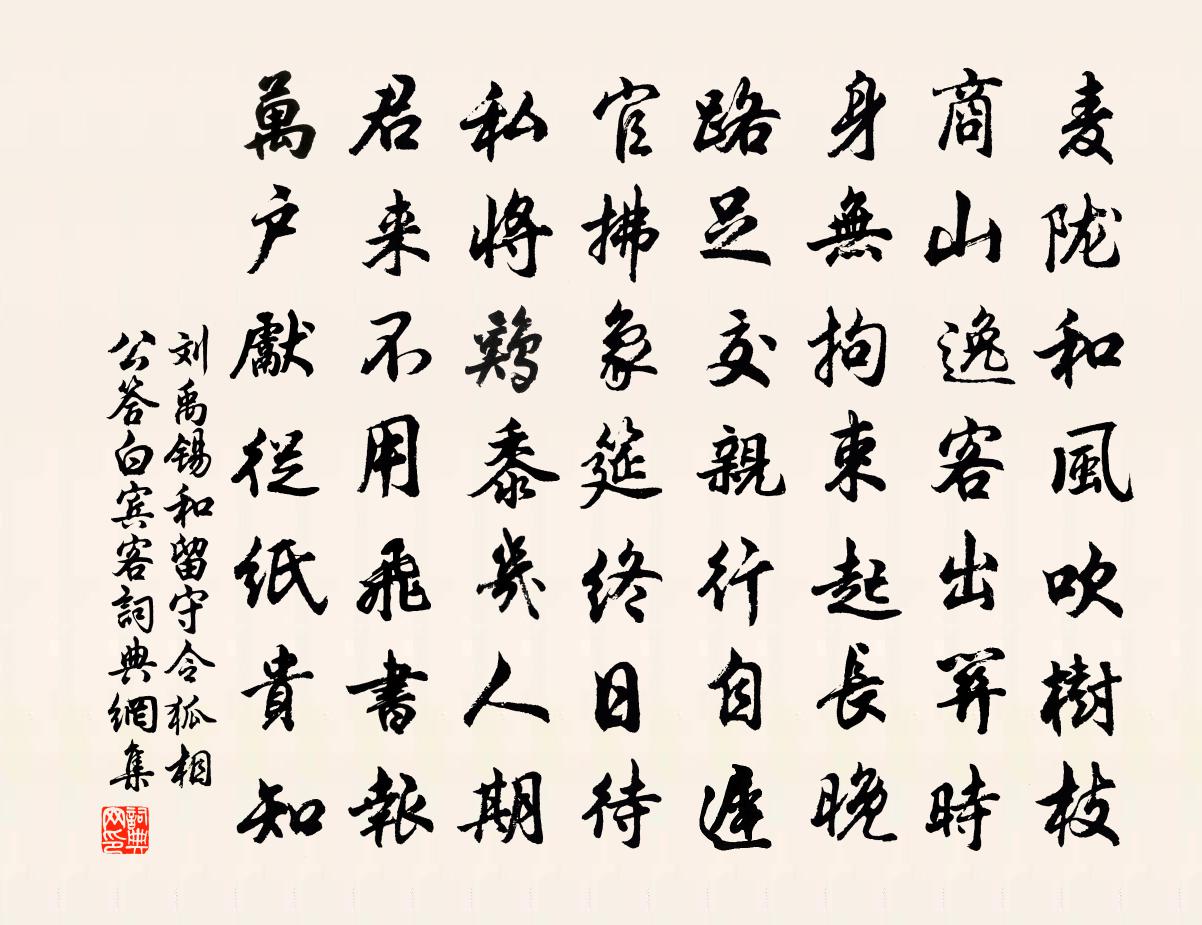 麦陇和風吹樹枝
商山逸客出關時
身無拘束起長晚
路足交親行自遲
官拂象筵終日待
私將鷄黍幾人期
君来不用飛書報
萬户獻從紙貴知
刘禹锡和留守令狐相
公答白宾客詞典網集
詞典
网印